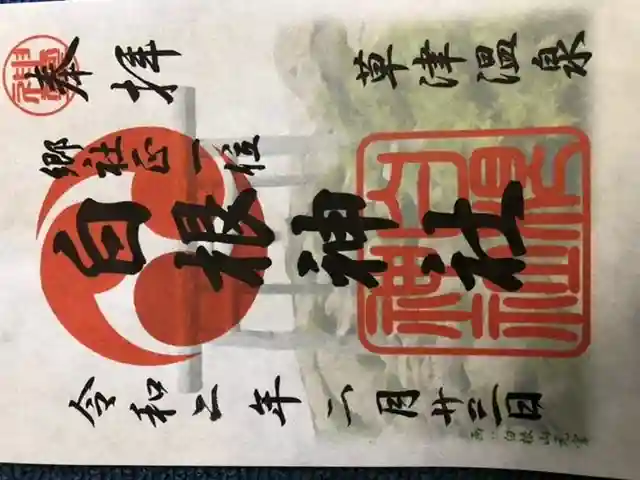 草津温泉
奉拝
郷社正一位
白根神社
令和二年二月廿三日
白根神社